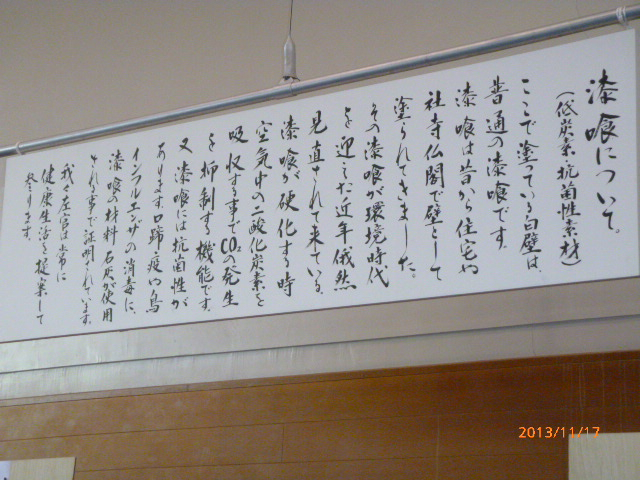 漆喰について。
(低炭素・抗菌性素材)
ここで塗っている白壁は、
普通の漆喰です。
漆喰は昔から住宅や
社寺仏閣で壁として
塗られてきました。
その漆喰が環境時代
を迎えた近年俄然
見直されて来ている。
漆喰が硬化する時
空気中の二酸化炭素を
吸収する事でCO₂の発生
を抑制する機能です。
又漆喰には抗菌性が
あります。口蹄疫や鳥
インフルエンザの消毒に、
漆喰の材料石灰が使用
され事で証明されています。
我々左官は常に
健康生活を提案して
参ります。
2013/11/17